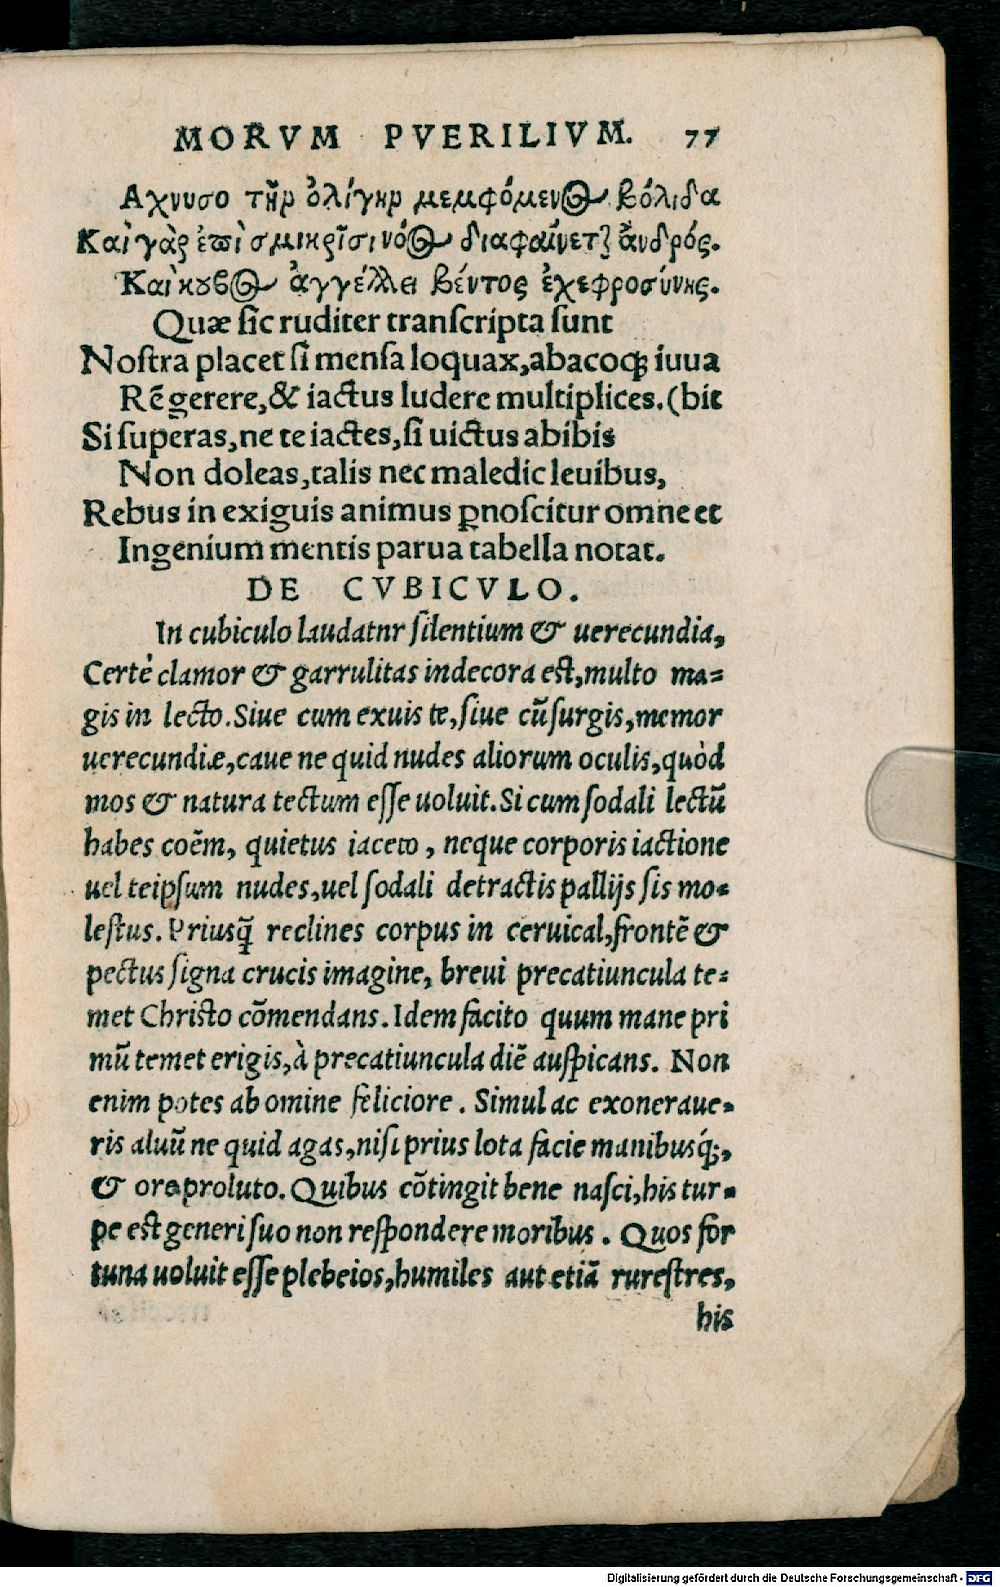 MORVM PVERILIVM. 77
Αχνυσο τὴν ὀλίγην μεμφόμενος βόλιδα
Καὶ γὰρ ἐπὶ σμικροῖσι νόος διαφαίνετ ἀνδρός.
Καὶ κυβος ἀγγέλλει βέντος ἐχεφροσύνης.
Quæ sic ruditer transcripta sunt
Nostra placet si mensa loquax, abacoq; iuua
Rē gerere, & iactus ludere multiplices. (bit
Si superas, ne te iactes, si uictus abibis
Non doleas, talis nec maledic leuibus,
Rebus in exiguis animus ꝑnoscitur omne et
Ingenium mentis parua tabella notat.
DE CVBICVLO.
In cubiculo laudatnr silentium & uerecundia,
Certè clamor & garrulitas indecora est, multo ma=
gis in lecto. Siue cum exuis te, siue cū surgis, memor
uerecundiæ, caue ne quid nudes aliorum oculis, quòd
mos & natura tectum esse uoluit. Si cum sodali lectū
habes coēm, quietus iaceto, neque corporis iactione
uel teipsum nudes, uel sodali detractis pallijs sis mo=
lestus. Priusq̄ reclines corpus in ceruical, frontē &
pectus signa crucis imagine, breui precatiuncula te=
met Christo cōmendans. Idem facito quum mane pri
mū temet erigis, à precatiuncula diē auspicans. Non
enim potes ab omine feliciore. Simul ac exoneraue=
ris aluū ne quid agas, nisi prius lota facie manibusq́;,
& ore proluto. Quibus cōtingit bene nasci, his tur=
pe est generi suo non respondere moribus. Quos for
tuna uoluit esse plebeios, humiles aut etiā rurestres,
his
Digitalisierung gefördert durch die Deutsche Forschungsgemeinschaft - DFG